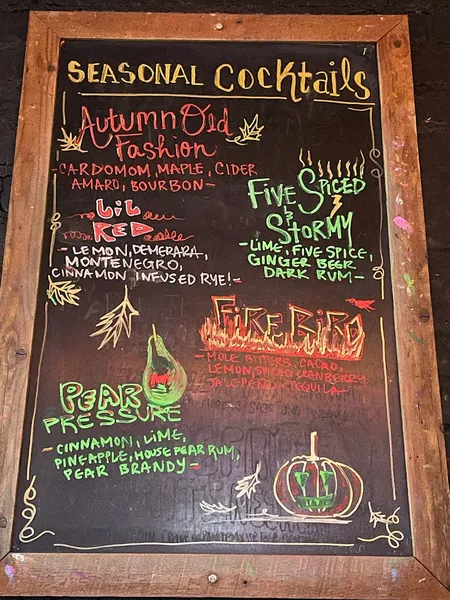 SEASONAL COCKtAils
Autumn Old
Fashion
-CARDOMOM, MAPLE, CIDER
AMARO, BOURBON-
LiL
RED
-LEMON, DEMERARA,
MONTENEGRO,
CINNAMON INFUSED RYE!-
FIVE SPICED
&
STORMY
-LIME, FIVE SPICE,
GINGER BEER
DARK RUM-
FiREBiRD
-MOLE BITTERS, CACAO,
LEMON, SPICED CRANBERRY
JALEPEÑO, TEQUILA-
PEAR
PRESSURE
-CINNAMON, LIME,
PINEAPPLE, HOUSE PEAR RUM,
PEAR BRANDY-